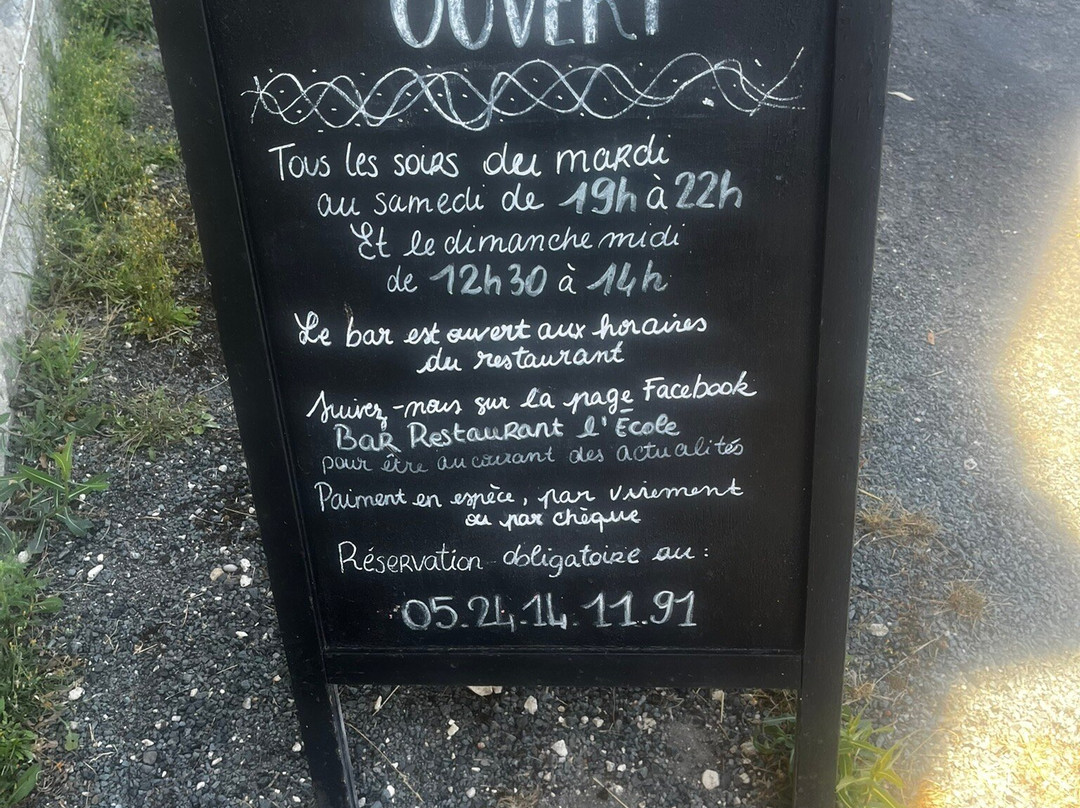 OUVERT
Tous les soirs du mardi
au samedi de 19h à 22h
Et le dimanche midi
de 12h30 à 14h
Le bar est ouvert aux horaires
du restaurant
Suivez-nous sur la page Facebook
Bar Restaurant l'École
pour être au courant des actualités
Paiment en espèce, par virement
ou par chèque
Réservation obligatoire au :
05.24.14.11.91